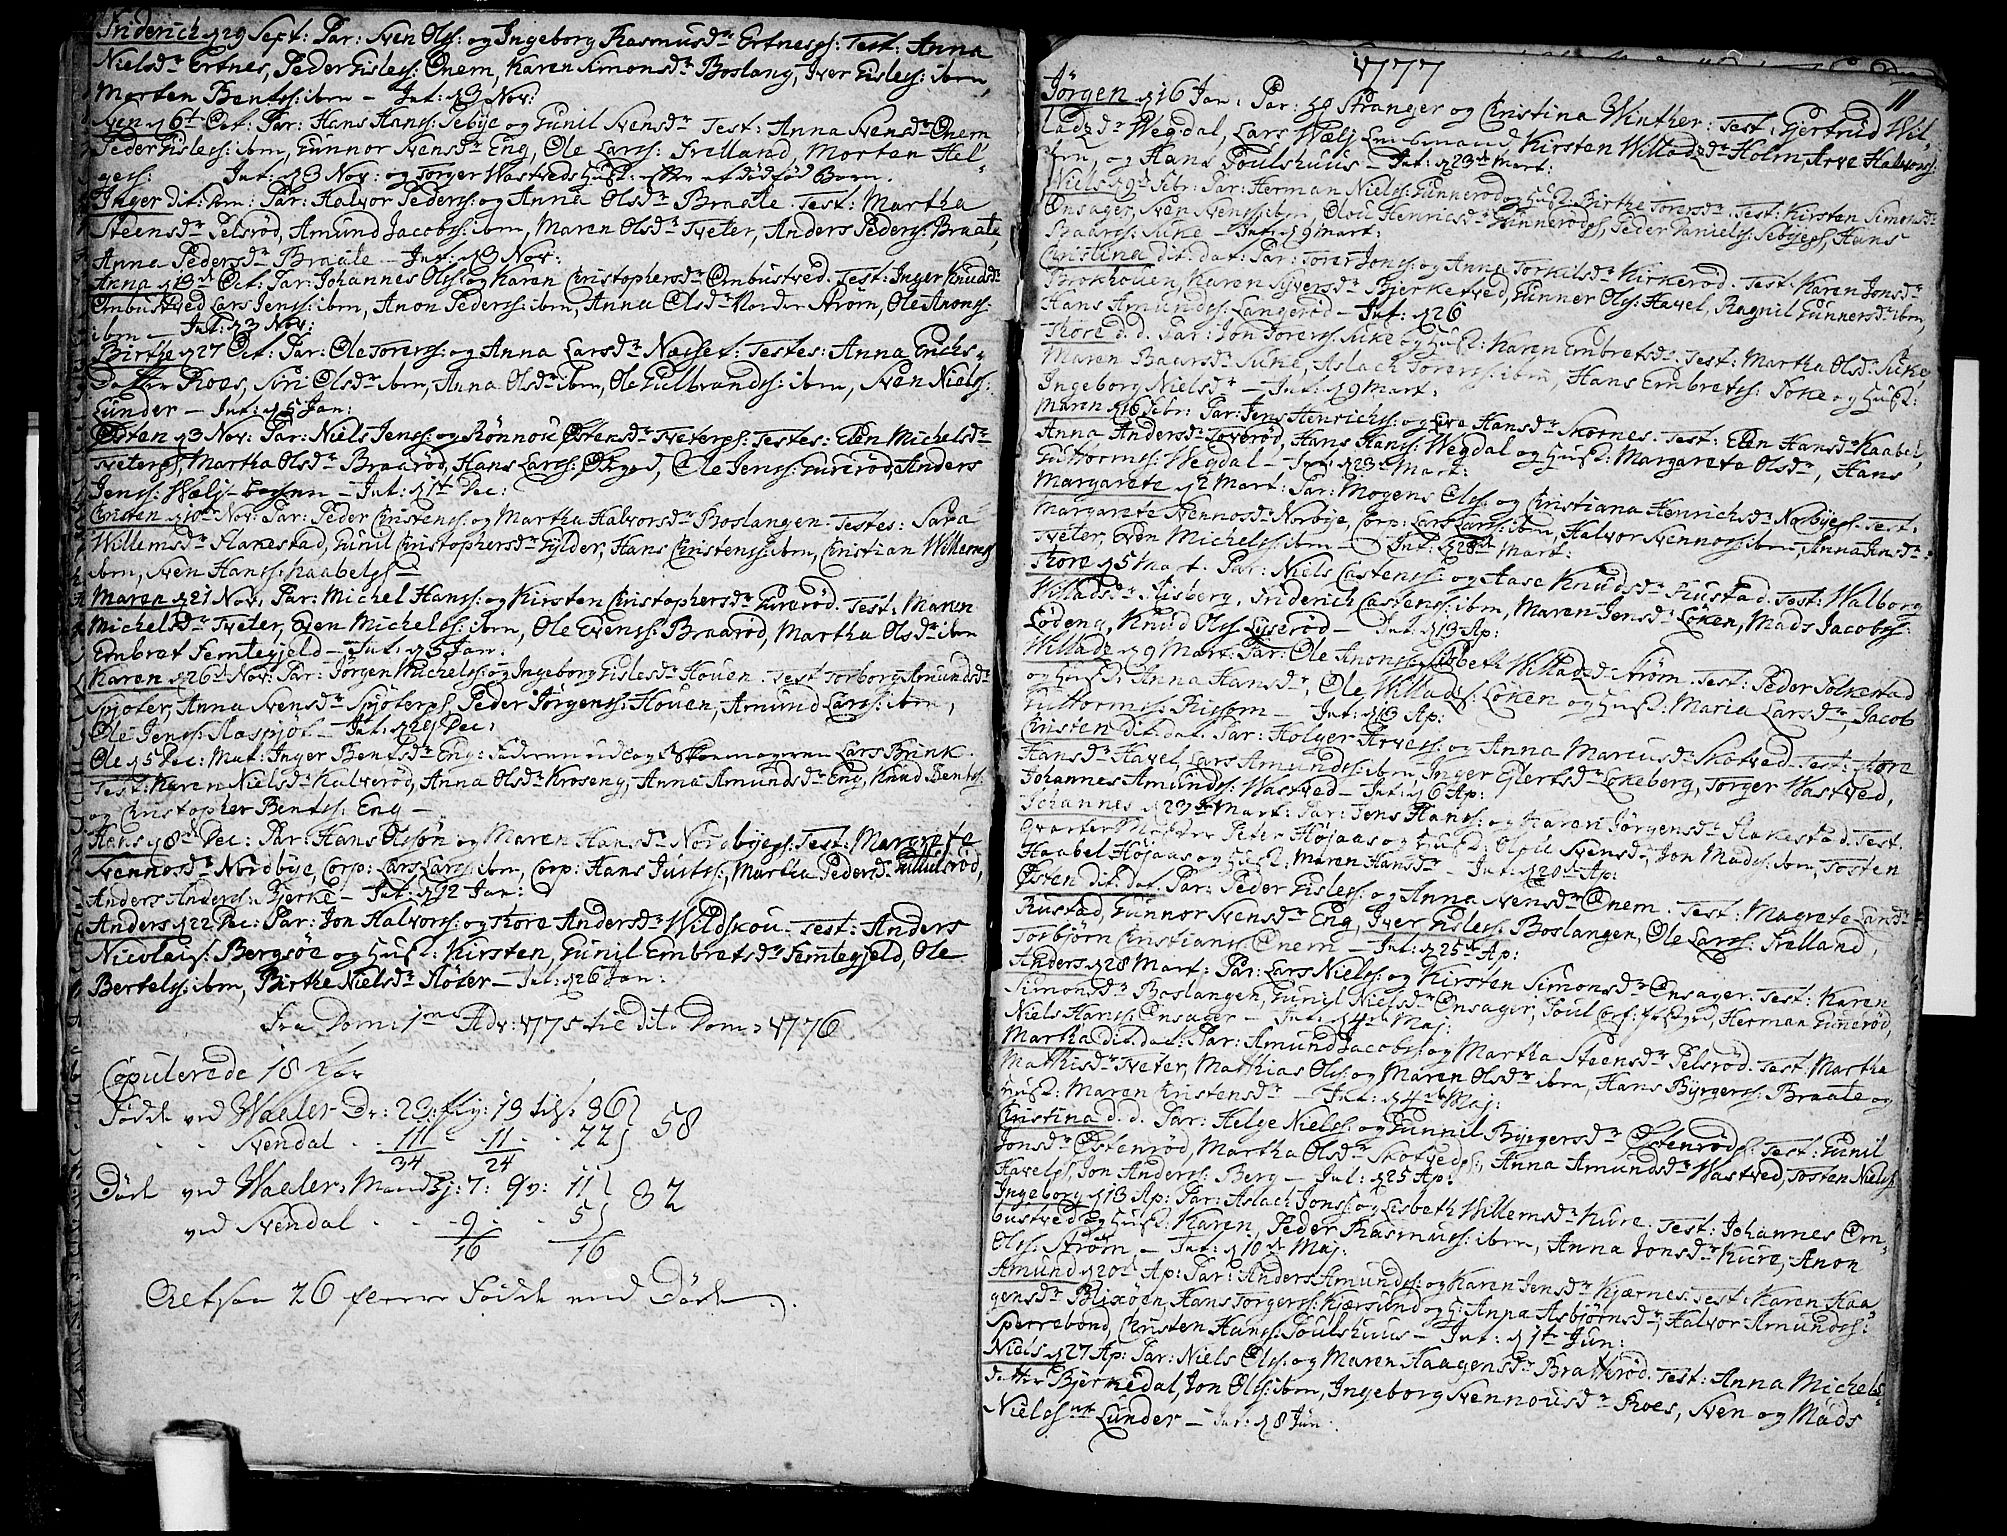 Friderich d 29 Sept: Par: Sven Ols: og Ingeborg Rasmusdr Ertnesgs: Test: Anna
Nielsdr Ertnes, Peder Gisless: Onem, Karen Simonsdr Boslang, Iver Gisless: ibm,
Morten Bentss: ibm – Int: d 3 Nov:
Sven d 6t Oct: Par: Hans Hanss: Sebye og Gunil Svensdr Test: Anna Svensdr Onem
Peder Gisless: ibm, Gunnor Svensdr Eng, Ole Larss: Frelland, Morten Hel-
gess: Int: d 3 Nov: og Torger Wastveds Hust: efter et dödföd Barn.
Inger dit: ibm: Par: Halvor Pederss: og Anna Olsdr Braate. Test: Martha
Steensdr Pelsröd, Amund Jacobss: ibm, Maren Olsdr Tveter, Anders Peders: Braate,
Anna Pedersdr Braate – Int: d 3 Nov:
Anna d 13d Oct: Par: Johannes Ols: og Karen Christophersdr Ombustved. Test: Inger Knudsdr
Ombustved, Lars Jenss: ibm, Anon Pederss: ibm, Anna Olsdr Norder Strøm, Ole Anons:
ibm – Int: d 3 Nov:
Birthe d 27 Oct: Par: Ole Torerss: og Anna Larsdr Nædset: Testes: Anna Erichs-
datter Roes, Siri Olsdr ibm, Anna Olsdr ibm, Ole Gulbrandss: ibm, Sven Niels:
Lunder – Int: d 5 Jan:
Østen d 3 Nov: Par: Niels Jenss: og Rönnou Østensdr Tveterps: Testes: Elen Michelsdr
Tveterps, Martha Olsdr Braaröd, Hans Larss: Ökged, Ole Jenss: Gureröd, Anders
Jenss: Wælj – Int: d 1t Dec:
Christen d 10d Nov: Par: Peder Christenss: og Martha Halvorsdr Boslangen. Testes: Sara
Willemsdr Flakestad, Gunil Christophersdr Gylder, Hans Christenss: ibm, Christian Willemss
ibm, Sven Hanss: Kaabelgs –
Maren d 21 Nov: Par: Michel Hanss: og Kirsten Christophersdr Gureröd. Test: Maren
Michelsdr Tveter, Even Michelss: ibm, Ole Evenss: Braaröd, Martha Olsdr ibm
Embret Femtegjeld – Int: d 5 Jan:
Karen d 26t Nov: Par: Jörgen Michelss: og Ingeborg Gislesdr Houen. Test: Torborg Amundsdr
Spjöter, Anna Svensdr Spjöterps, Peder Jörgenss: Houen, Amund Larss: ibm,
Ole Jenss: Raspjöt – Int: d 26 Dec:
Ole d 5 Dec: Mat: Inger Bentsdr Eng: Faderen udlagt Skoemageren Lars Brink
Test: Karen Nielsdr Kulveröd, Anna Olsdr Kroseng, Anna Amundsdr Eng, Knud Bentss:
og Christopher Bentss: Eng –
Hans d 8d Dec: Par: Hans Olssön og Maren Hansdr Nordbyegs: Test: Margrete
Svennosdr Nordbye, Corp: Lars Larss: ibm, Corp: Hans Justss:, Martha Pedersdr Gullulsröd,
Anders Anderss: Bjerke – Int: d 12 Jan:
Anders d 22 Dec: Par: Jon Halvorss: og Thore Andersdr Wildskou – Test: Anders
Nicolais: Bergsöe og Hust: Kirsten, Gunil Embretsdr Femtegjeld, Ole
Bertelss: ibm, Birthe Nielsdr Slöter – Int: d 26 Jan:
Fra Dom: 1ma Adv: 1775 til dito Dom: 1776
Copulerede 18 Par
Födde ved Waaler Dr: 23: Pig: 13 tils: 36} 58
– – Svendal – 11 – 11 – 22}
34 24
Döde ved Waaler: Mandkj: 7: Qv: 11} 32
ved Svendal – 9 – 5}
16 16
Altsaa 26 flerre Födde end Döde.
1777
11
Jörgen d 16 Jan: Par: Stranger og Christina Winther: Test: Gjertrud Wil-
ladsdr Wegdal, Lars Wælj Lensmand, Kirsten Willadsdr Holm, Arve Halvors:
ibm, og Hans Poulshuus – Int: d 23d Mart:
Niels d 9d Febr: Par: Herman Nielss: Gunneröd og Hust: Birthe Torersdr. Test: Kirsten Simonsdr
Onsager, Sven Svenss: ibm, Olou Henricsdr Gunnerödgs, Peder Daniels: Sebyegs, Hans
Baarss: Suke – Int: d 9 Mart:
Christina dit: dat: Par: Torer Jonss: og Anna Torkilsdr Kirkeröd. Test: Karen Jonsdr
Brokhouen, Karen Syversdr Bjerketved, Gunner Ols: Havel, Ragnil Gunnersdr ibm,
Hans Amundss: Langeröd – Int: d 26
Thore d. d. Par: Jon Torerss: Suke og Hust: Karen Embretsdr. Test: Martha Olsdr Suke,
Maren Baarsdr Suke, Aslach Torerss: ibm, Hans Embretss: Foke og Hust:
Ingeborg Nielsdr – Int: d 9 Mart:
Maren d 16 Febr: Par: Jens Henrichss: og Live Hansdr Skornes. Test: Elen Hansdr Kaabel,
Anna Andersdr Toveröd, Hans Hanss: Wegdal og Hust: Margarete Olsdr, Hans
Guttormss: Wegdal – Int: d 23d Mart:
Margarete d 2 Mart: Par: Mogens Ols: og Christiana Henrichsdr Norbyegs. Test:
Margarete Svennosdr Norbye, Corp: Lars Larss: ibm, Halvor Svennoss: ibm, Anna Jensdr
Tveter, Even Michelss: ibm – Int: d 28d Mart:
Thore d 5 Mart. Par: Niels Castenss: og Aase Knudsdr Rustad. Test: Walborg
Willadsdr Risberg, Friderich Castenss: ibm, Maren Jensdr Löken, Mads Jacobss:
Lödeng, Knud Ols: Lyseröd – Int: d 13 Ap:
Willads d 9 Mart: Par: Ole Anons: og Lisbeth Willadsdr Strøm. Test: Peder Folkestad
og Hust: Anna Hansdr, Ole Willads: Löken og Hust: Maria Larsdr, Jacob
Guttormss: Rissom – Int: d 13 Ap:
Christen dit: dat: Par: Holger Arvess: og Anna Marcusdr Skotved. Test: Thore
Hansdr Havel, Lars Amundss: ibm, Inger Elertsdr Lökeberg, Torger Wastved,
Johannes Amundss: Wastved – Int: d 6 Ap:
Johannes d 23d Mart: Par: Jens Hanss: og Karen Jörgensdr Flakestad. Test.
Qvarter Mester Peter Höjaas og Hust: Oloe Svensdr, Jon Madss: ibm, Tosten
Haabel Höjaas og Hust: Maren Hansdr – Int: d 20d Ap:
Østen dit. dat. Par: Peder Gisless: og Anna Svensdr Onem. Test: Magrete Larsdr
Rustad, Gunnor Svensdr Eng, Iver Gisless: Boslangen, Ole Larss: Frelland,
Torbjörn Christians: Onem – Int: d 25d Ap:
Anders d 28 Mart: Par: Lars Nielss: og Kirsten Simonsdr Onsager. Test: Karen
Simonsdr Boslangen, Gunil Nielsdr Onsager, Poul, Herman Guneröd,
Niels Hanss: Onsager – Int: d 4d Maj:
Martha dit. dat: Par: Amund Jacobs: og Martha Steensdr Pelsröd. Test: Martha
Mathisdr Tveter, Mathias Ols: og Maren Olsdr ibm, Hans Byrgerss: Braate og
Hust: Maren Christensdr – Int: d 4d Maj:
Christina d. d. Par: Helge Nielss: og Gunnil Byrgersdr Østenrödgs: Test: Gunil
Jonsdr Østenröd, Martha Olsdr Skotvedgs:, Anna Amundsdr Wastved, Tosten Nielss
Havelgs, Jon Anderss: Berg – Int: d 25 Ap:
Ingeborg d 13 Ap: Par: Aslach Jonss: og Lisbeth Willemsdr Kure. Test: Johannes Om-
bustved og Hust: Karen, Peder Rasmuss: ibm, Anna Jonsdr Kure, Anon
Ols: Strøm – Int: d 10d Maj:
Amund d 20d Ap: Par: Anders Amundss: og Karen Jensdr Kjærnes. Test: Karen Haa-
gensdr Blixöen, Hans Torgerss: Kjærsund og H: Anna Asbjörnsdr, Halvor Amundss:
Sperrebond, Christen Hanss: Poulshuus – Int: d 1t Jun:
Niels d 27 Ap: Par: Niels Ols: og Maren Haagensdr Bratteröd. Test: Anna Michels-
datter Bjerkedal, Jon Ols: ibm, Ingeborg Svennousdr Roes, Sven og Mads
Nielss Lunder – Int: d 8 Jun: